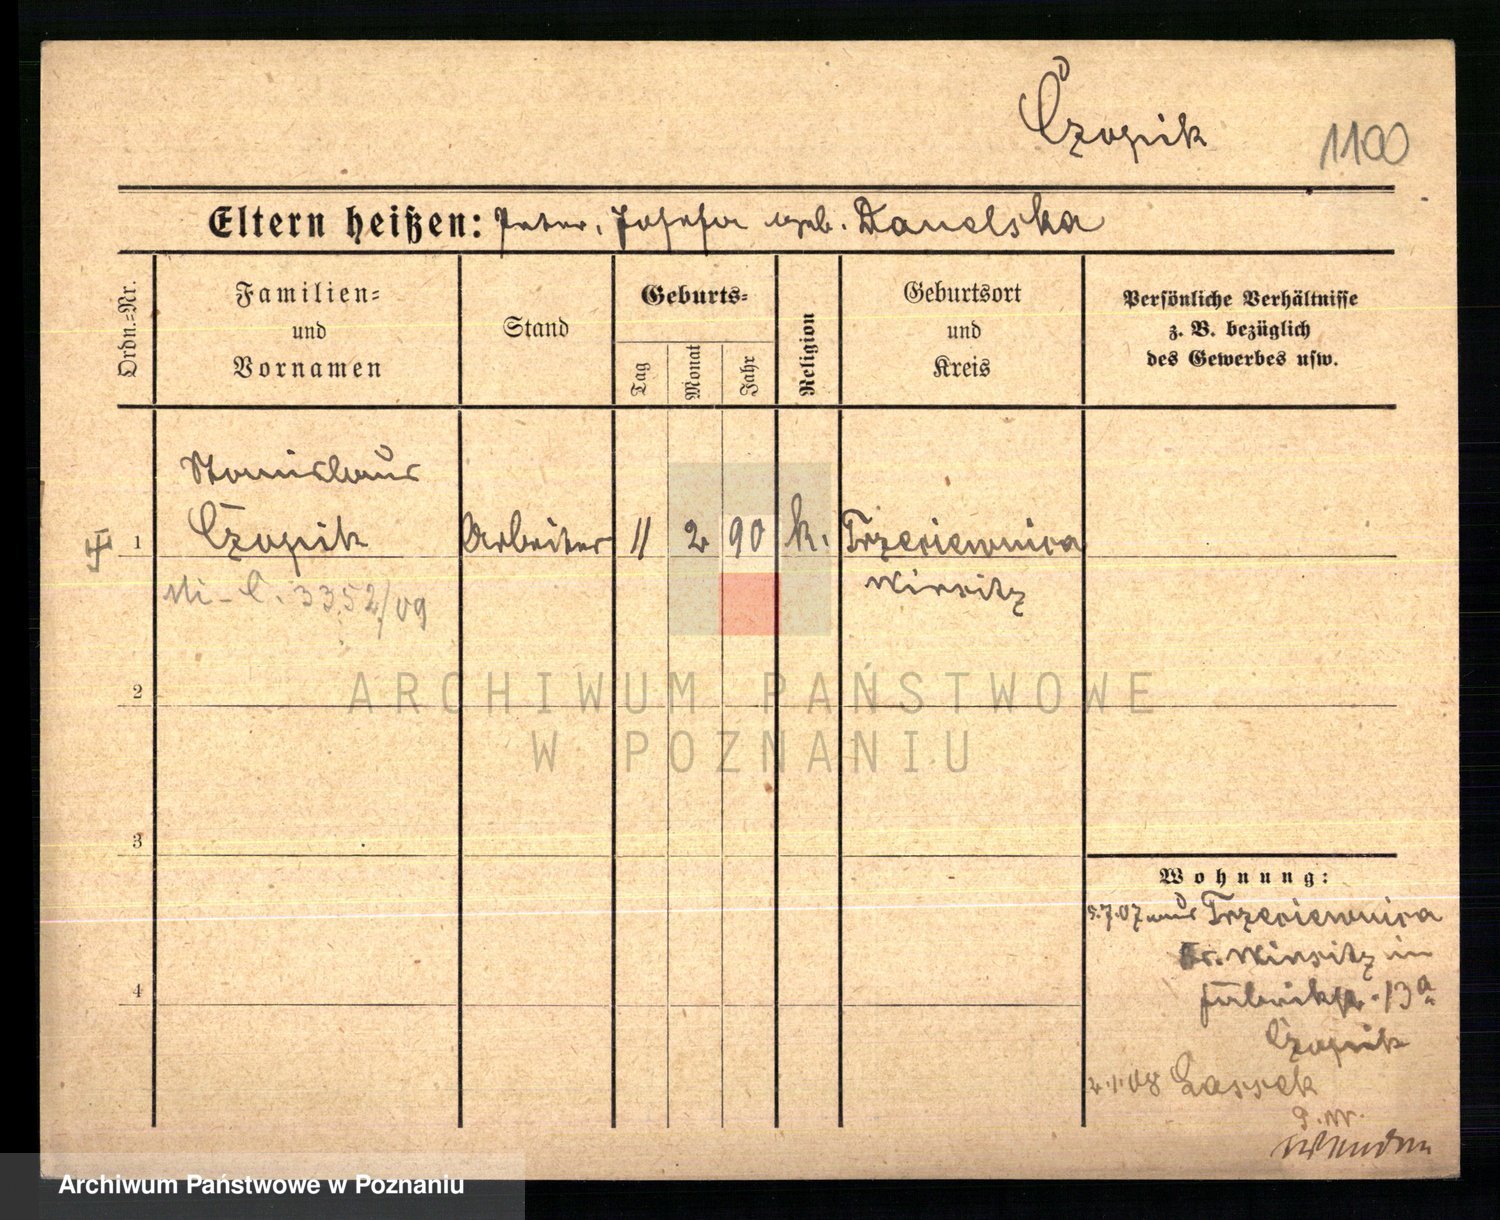 Czopik 1100
Eltern heißen: Peter, Josefa geb. Danelska
Ordn.-Nr.
Familien- und Vornamen
Stand
Geburts-
Tag
Monat
Jahr
Religion
Geburtsort und Kreis
Persönliche Verhältnisse
z. B. bezüglich
des Gewerbes usw.
Stanislaus
1 Czopik Arbeiter 11 2 90 k. Trzeciewnica
Wirsitz
Mi-C. 3352/09
2
ARCHIWUM PAŃSTWOWE
W POZNANIU
3
Wohnung:
5.7.07 aus Trzeciewnica
Kr. Wirsitz in
Fabrikstr. 13a
Czopik
4
2.1.08 Lassek
P.W.
wenden
Archiwum Państwowe w Poznaniu